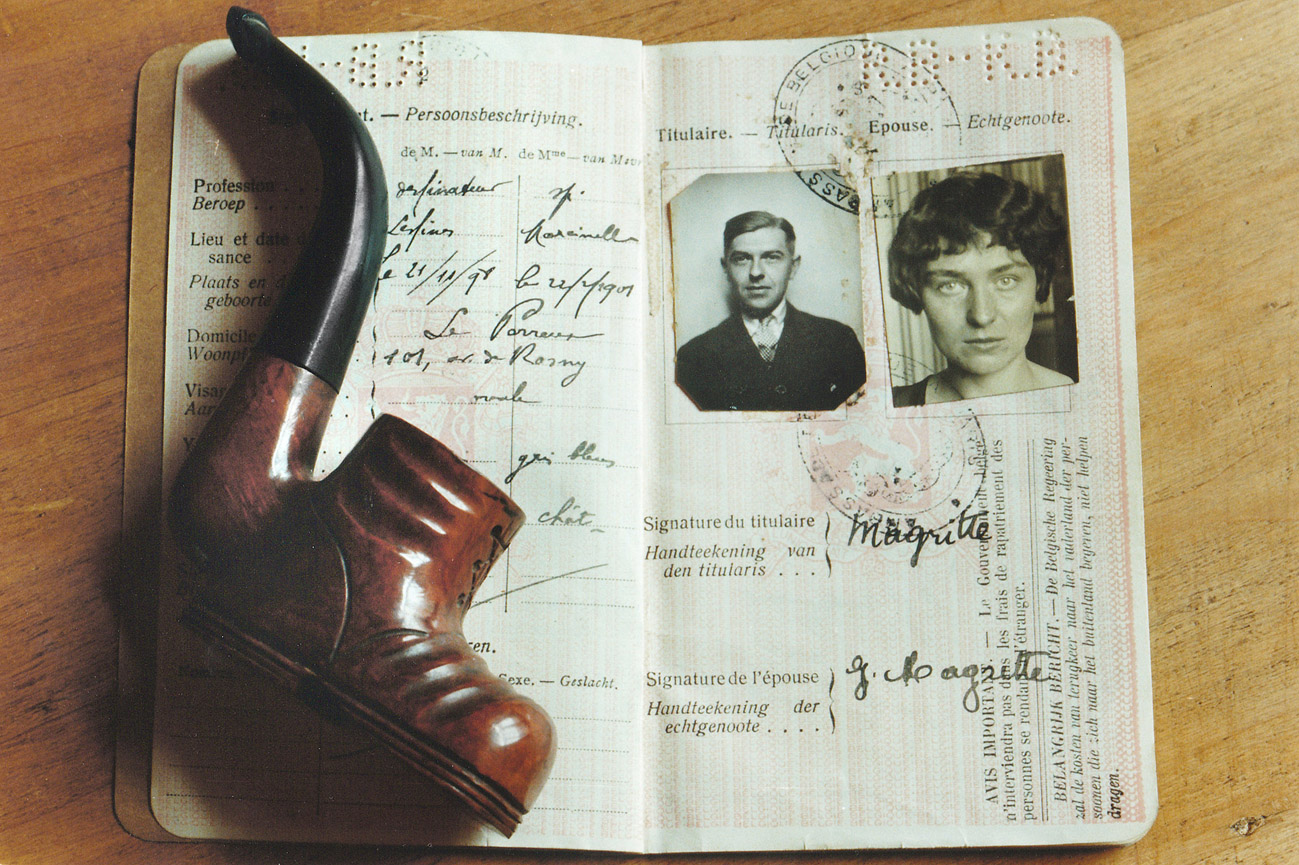 2
t. — Persoonsbeschrijving.
de M. — van M. de Mme — van Mevr
Profession . . . dessinateur sp.
Beroep . . . .
Lieu et date d Lessines Marcinelle
sance .
le 21/11/98 le 22/2/1901
Plaats en d
geboorte
Domicile Le Perreux
Woonpl 101, av. de Rosny
Visa ovale
Aan
gris bleus
chât
sen.
Nom. Sexe. — Geslacht.
R.B-K.B.
DE BELGIQUE
Titulaire. — Titularis. Epouse. — Echtgenoote.
Signature du titulaire Magritte
Handteekening van
den titularis . . .
Signature de l'épouse G. Magritte
Handteekening der
echtgenoote . . . .
AVIS IMPORTANT — Le Gouvernement belge
n'interviendra pas dans les frais de rapatriement des
personnes se rendant à l'étranger.
BELANGRIJK BERICHT. — De Belgische Regeering
zal de kosten van terugkeer naar het vaderland der per-
soonen die zich naar het buitenland begeven, niet helpen
dragen.